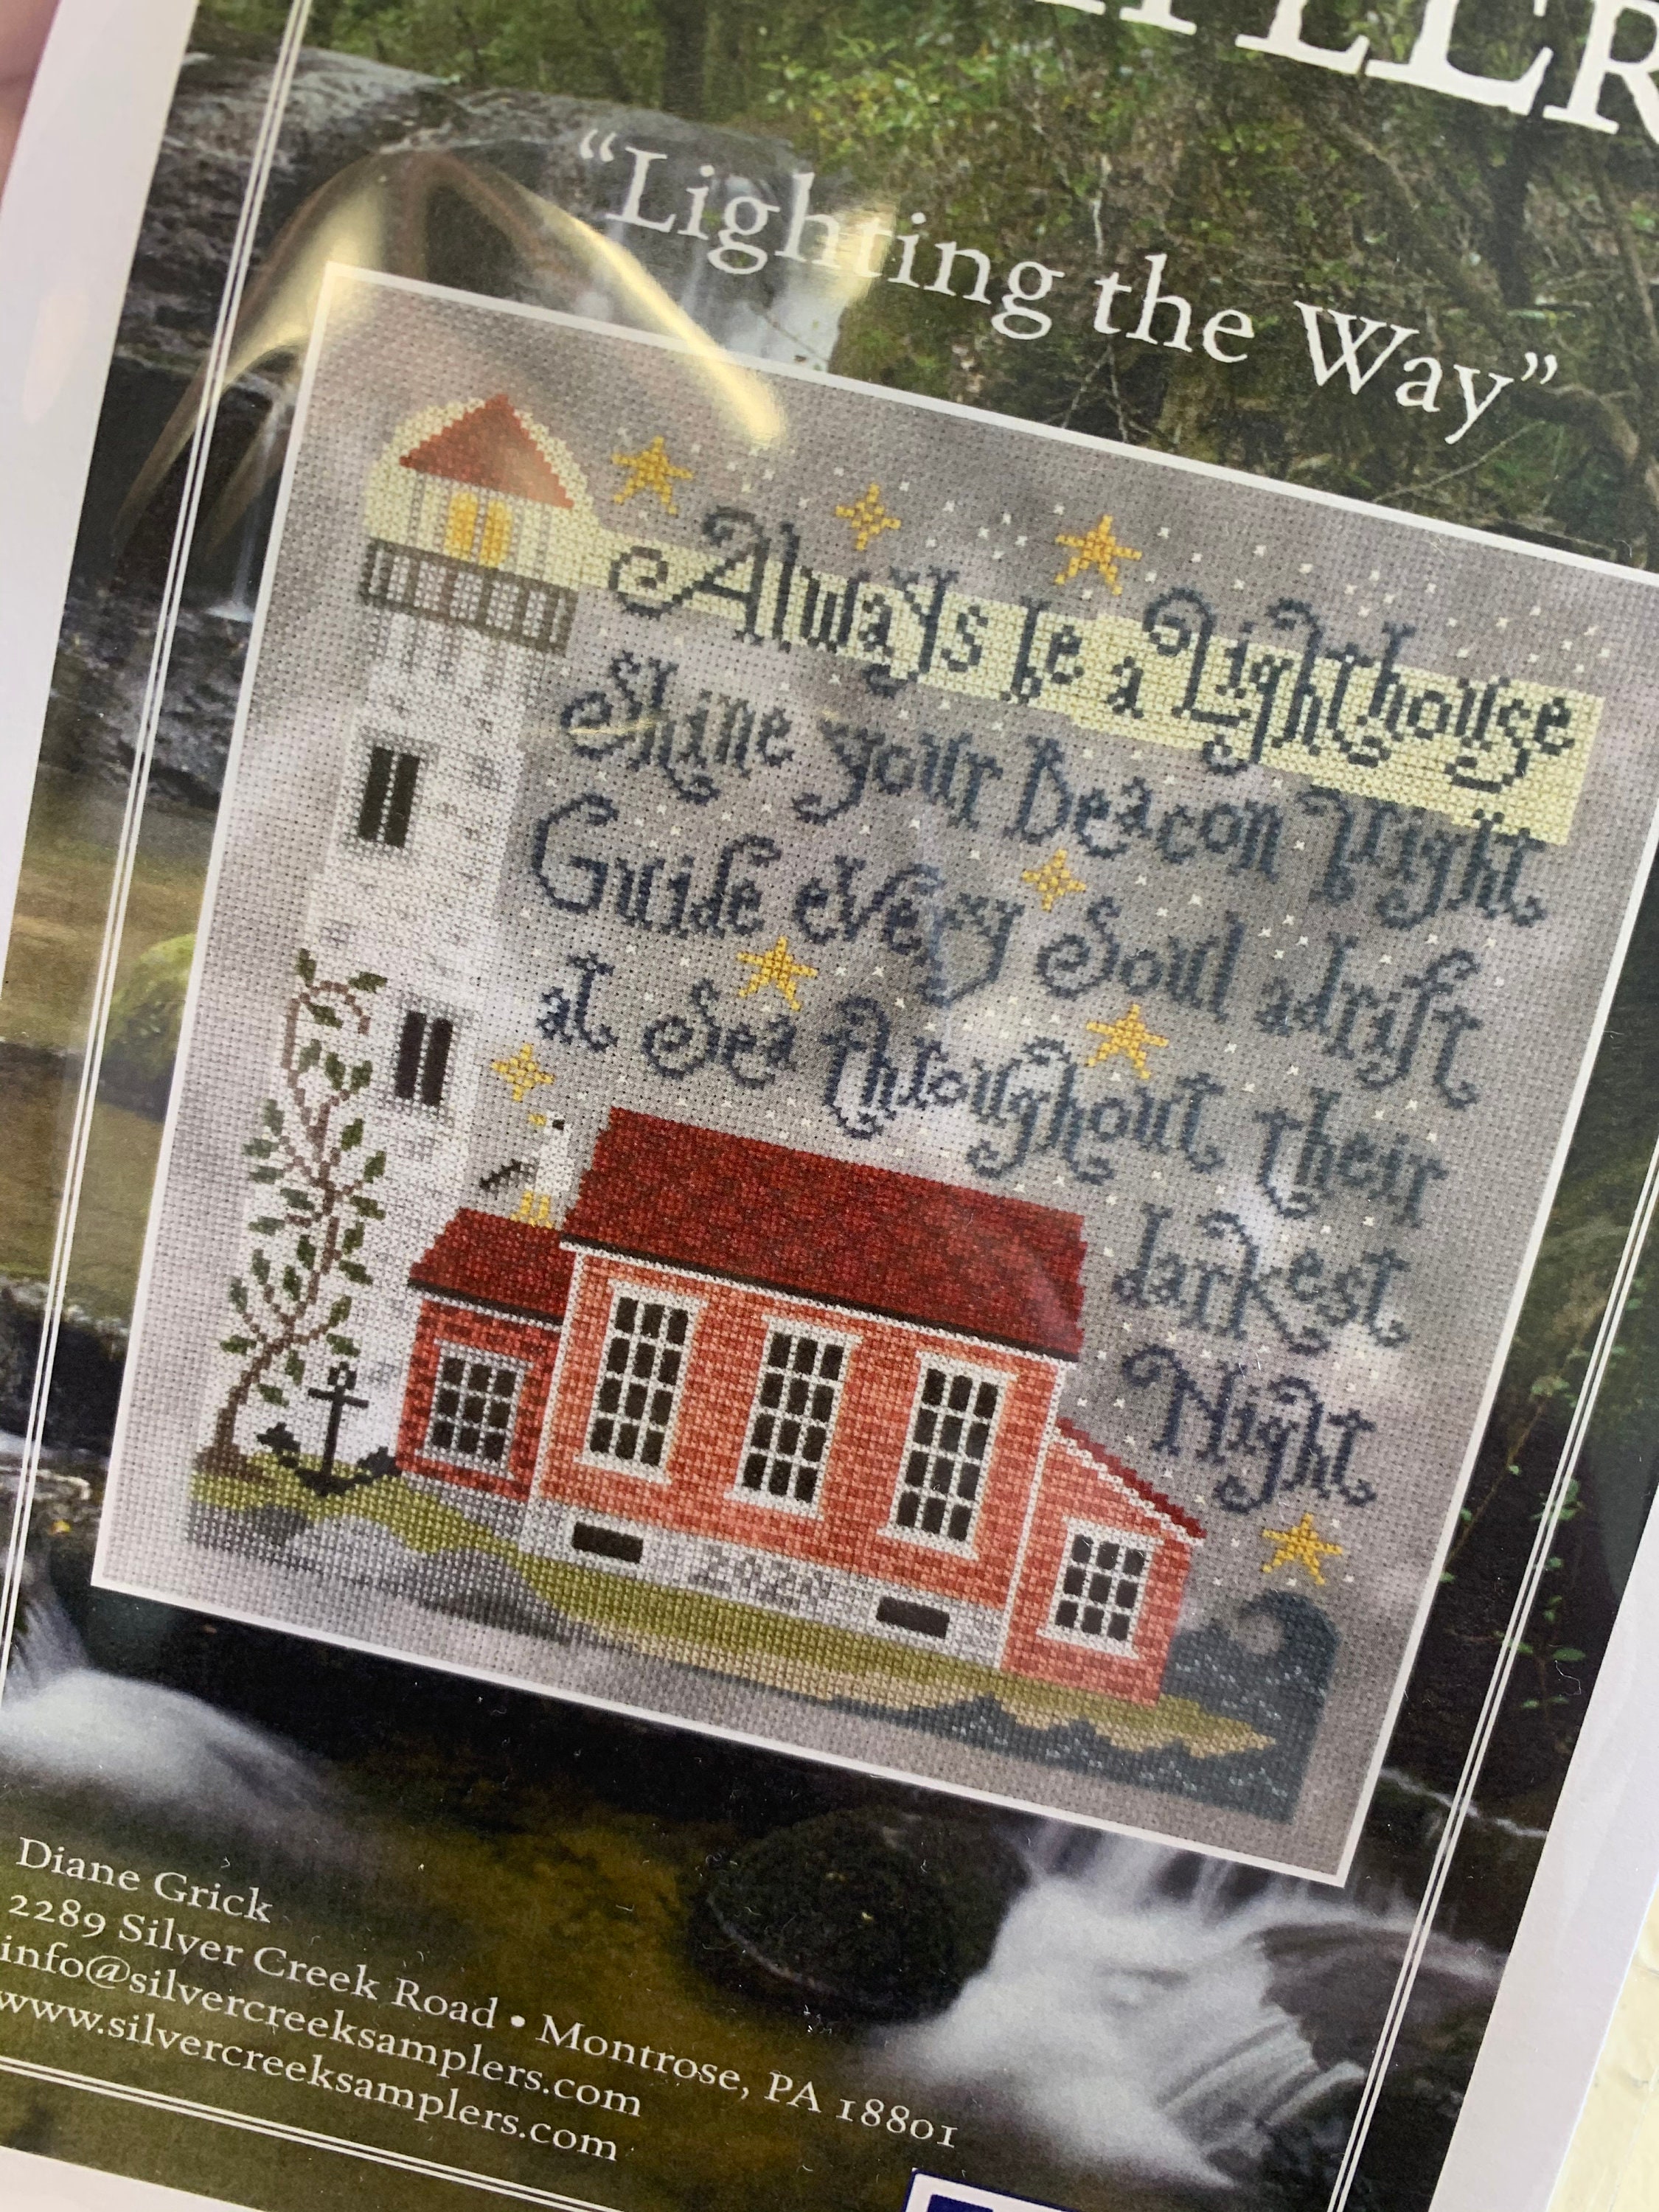 “Lighting the Way”
Always be a Lighthouse
Shine your Beacon bright
Guide every Soul adrift
at Sea throughout their
darkest
Night
Diane Grick
2289 Silver Creek Road • Montrose, PA 18801
info@silvercreeksamplers.com
www.silvercreeksamplers.com